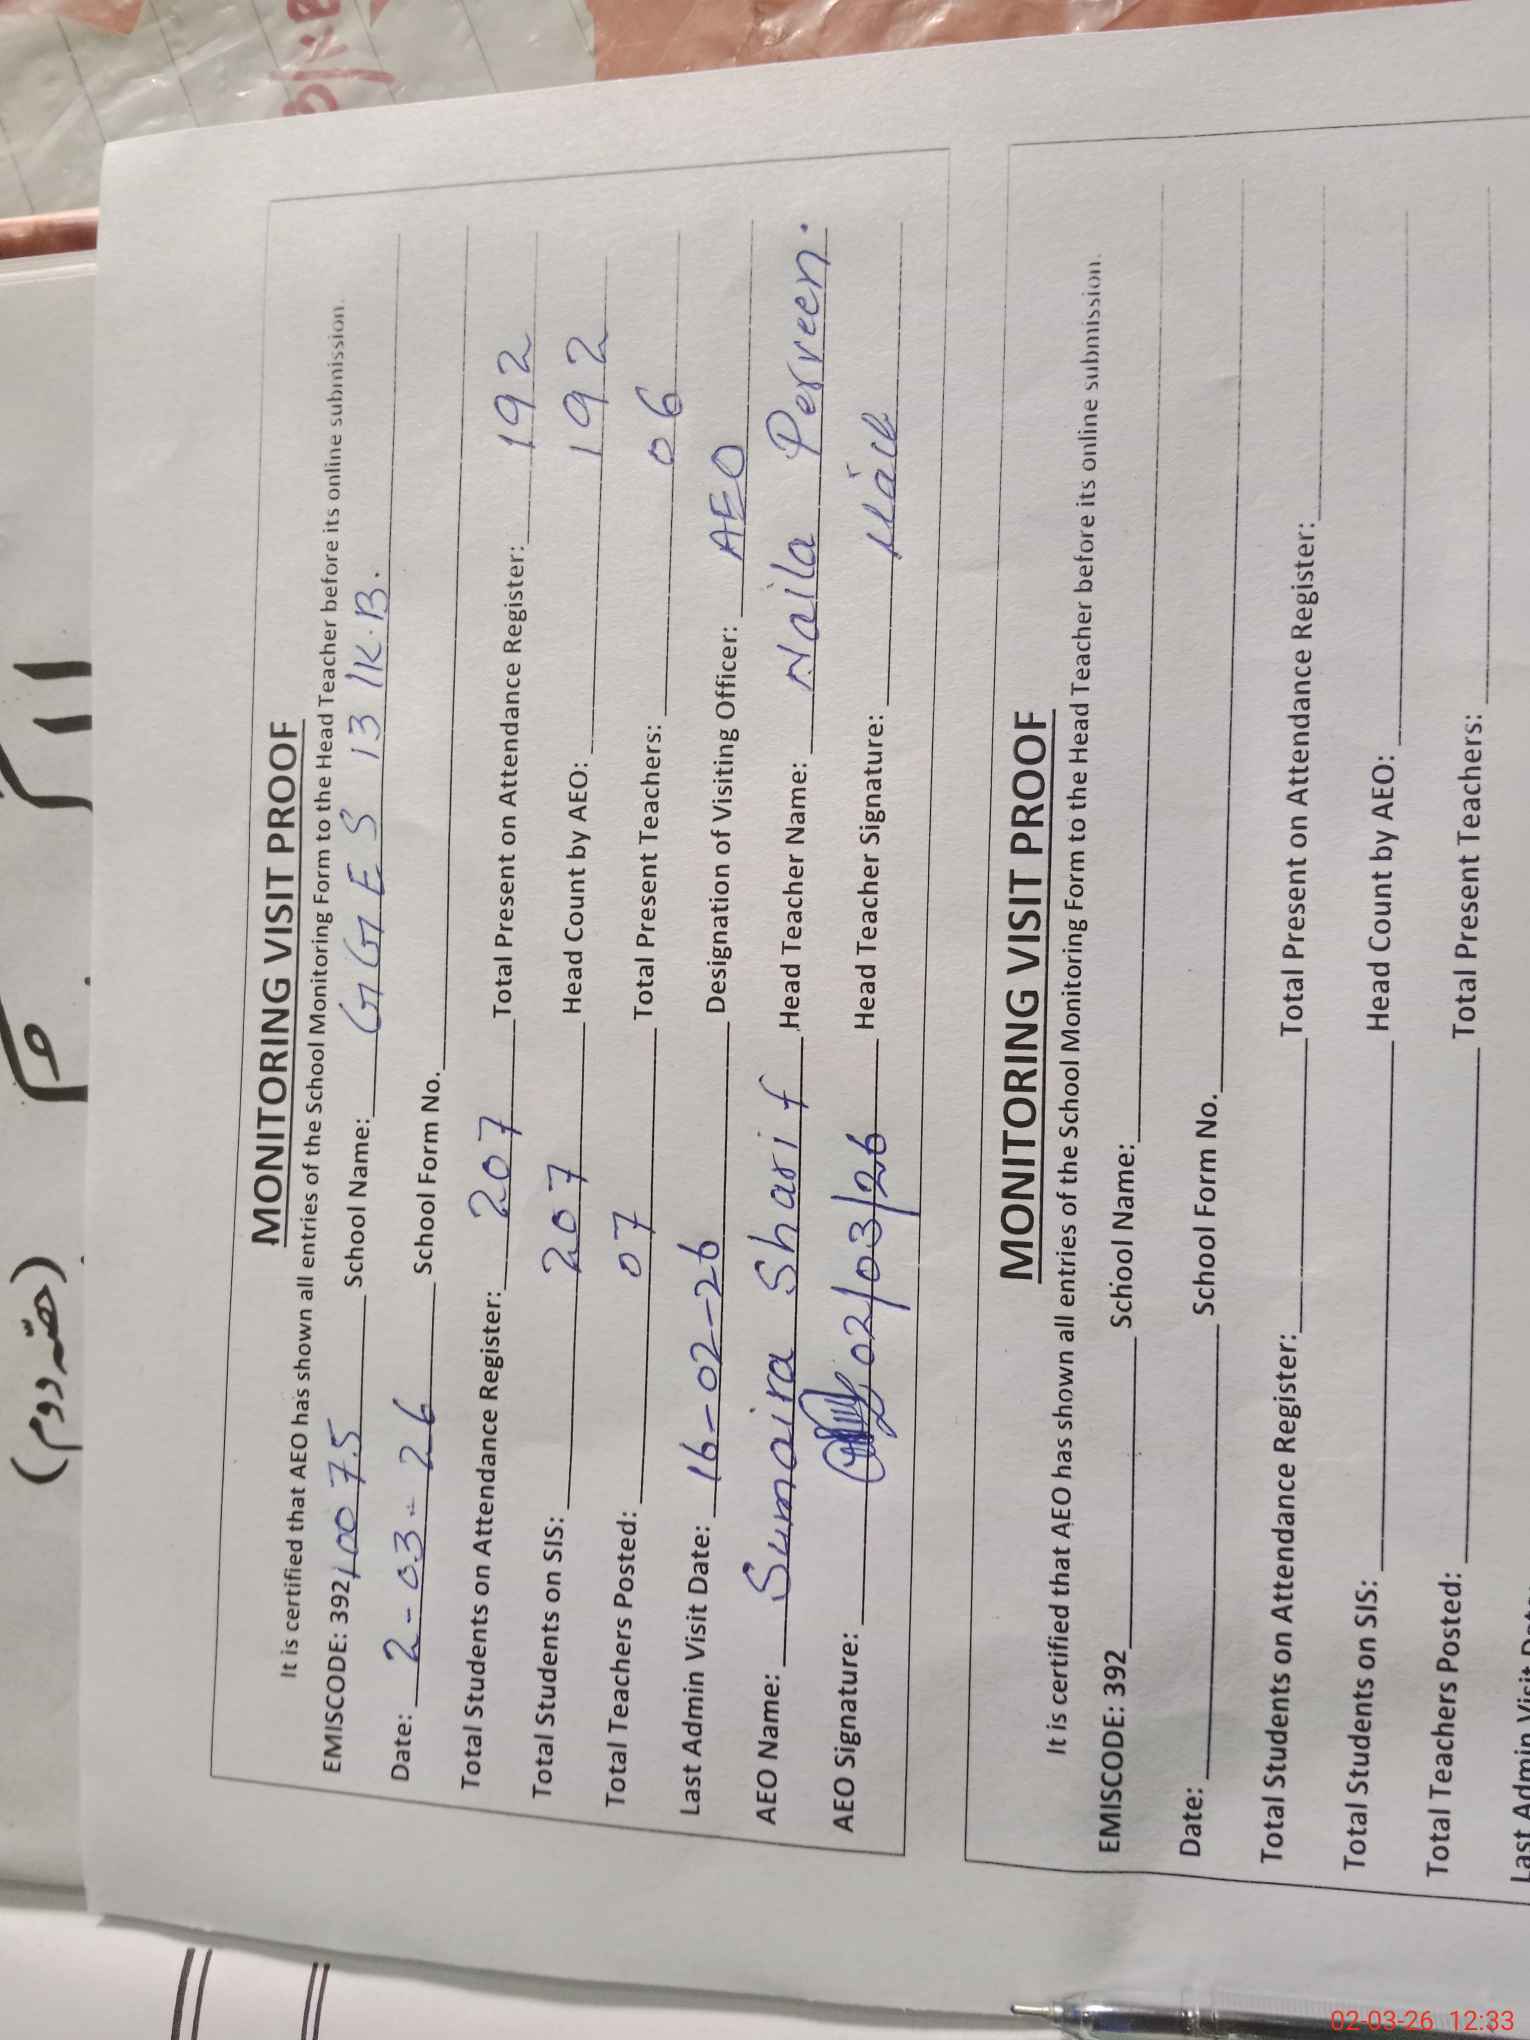 (حصّہ دوم)
MONITORING VISIT PROOF
It is certified that AEO has shown all entries of the School Monitoring Form to the Head Teacher before its online submission.
EMISCODE: 39210075 School Name: GGES 13 1K.B.
Date: 2-03-26 School Form No.
Total Students on Attendance Register: 207 Total Present on Attendance Register: 192
Total Students on SIS: 207 Head Count by AEO: 192
Total Teachers Posted: 07 Total Present Teachers: 06
Last Admin Visit Date: 16-02-26 Designation of Visiting Officer: AEO
AEO Name: Sumaira Sharif Head Teacher Name: Naila Perveen.
AEO Signature: 02/03/26 Head Teacher Signature:
MONITORING VISIT PROOF
It is certified that AEO has shown all entries of the School Monitoring Form to the Head Teacher before its online submission.
EMISCODE: 392 School Name:
Date: School Form No.
Total Students on Attendance Register: Total Present on Attendance Register:
Total Students on SIS: Head Count by AEO:
Total Teachers Posted: Total Present Teachers:
Last Admin Visit Date:
02-03-26 12:33